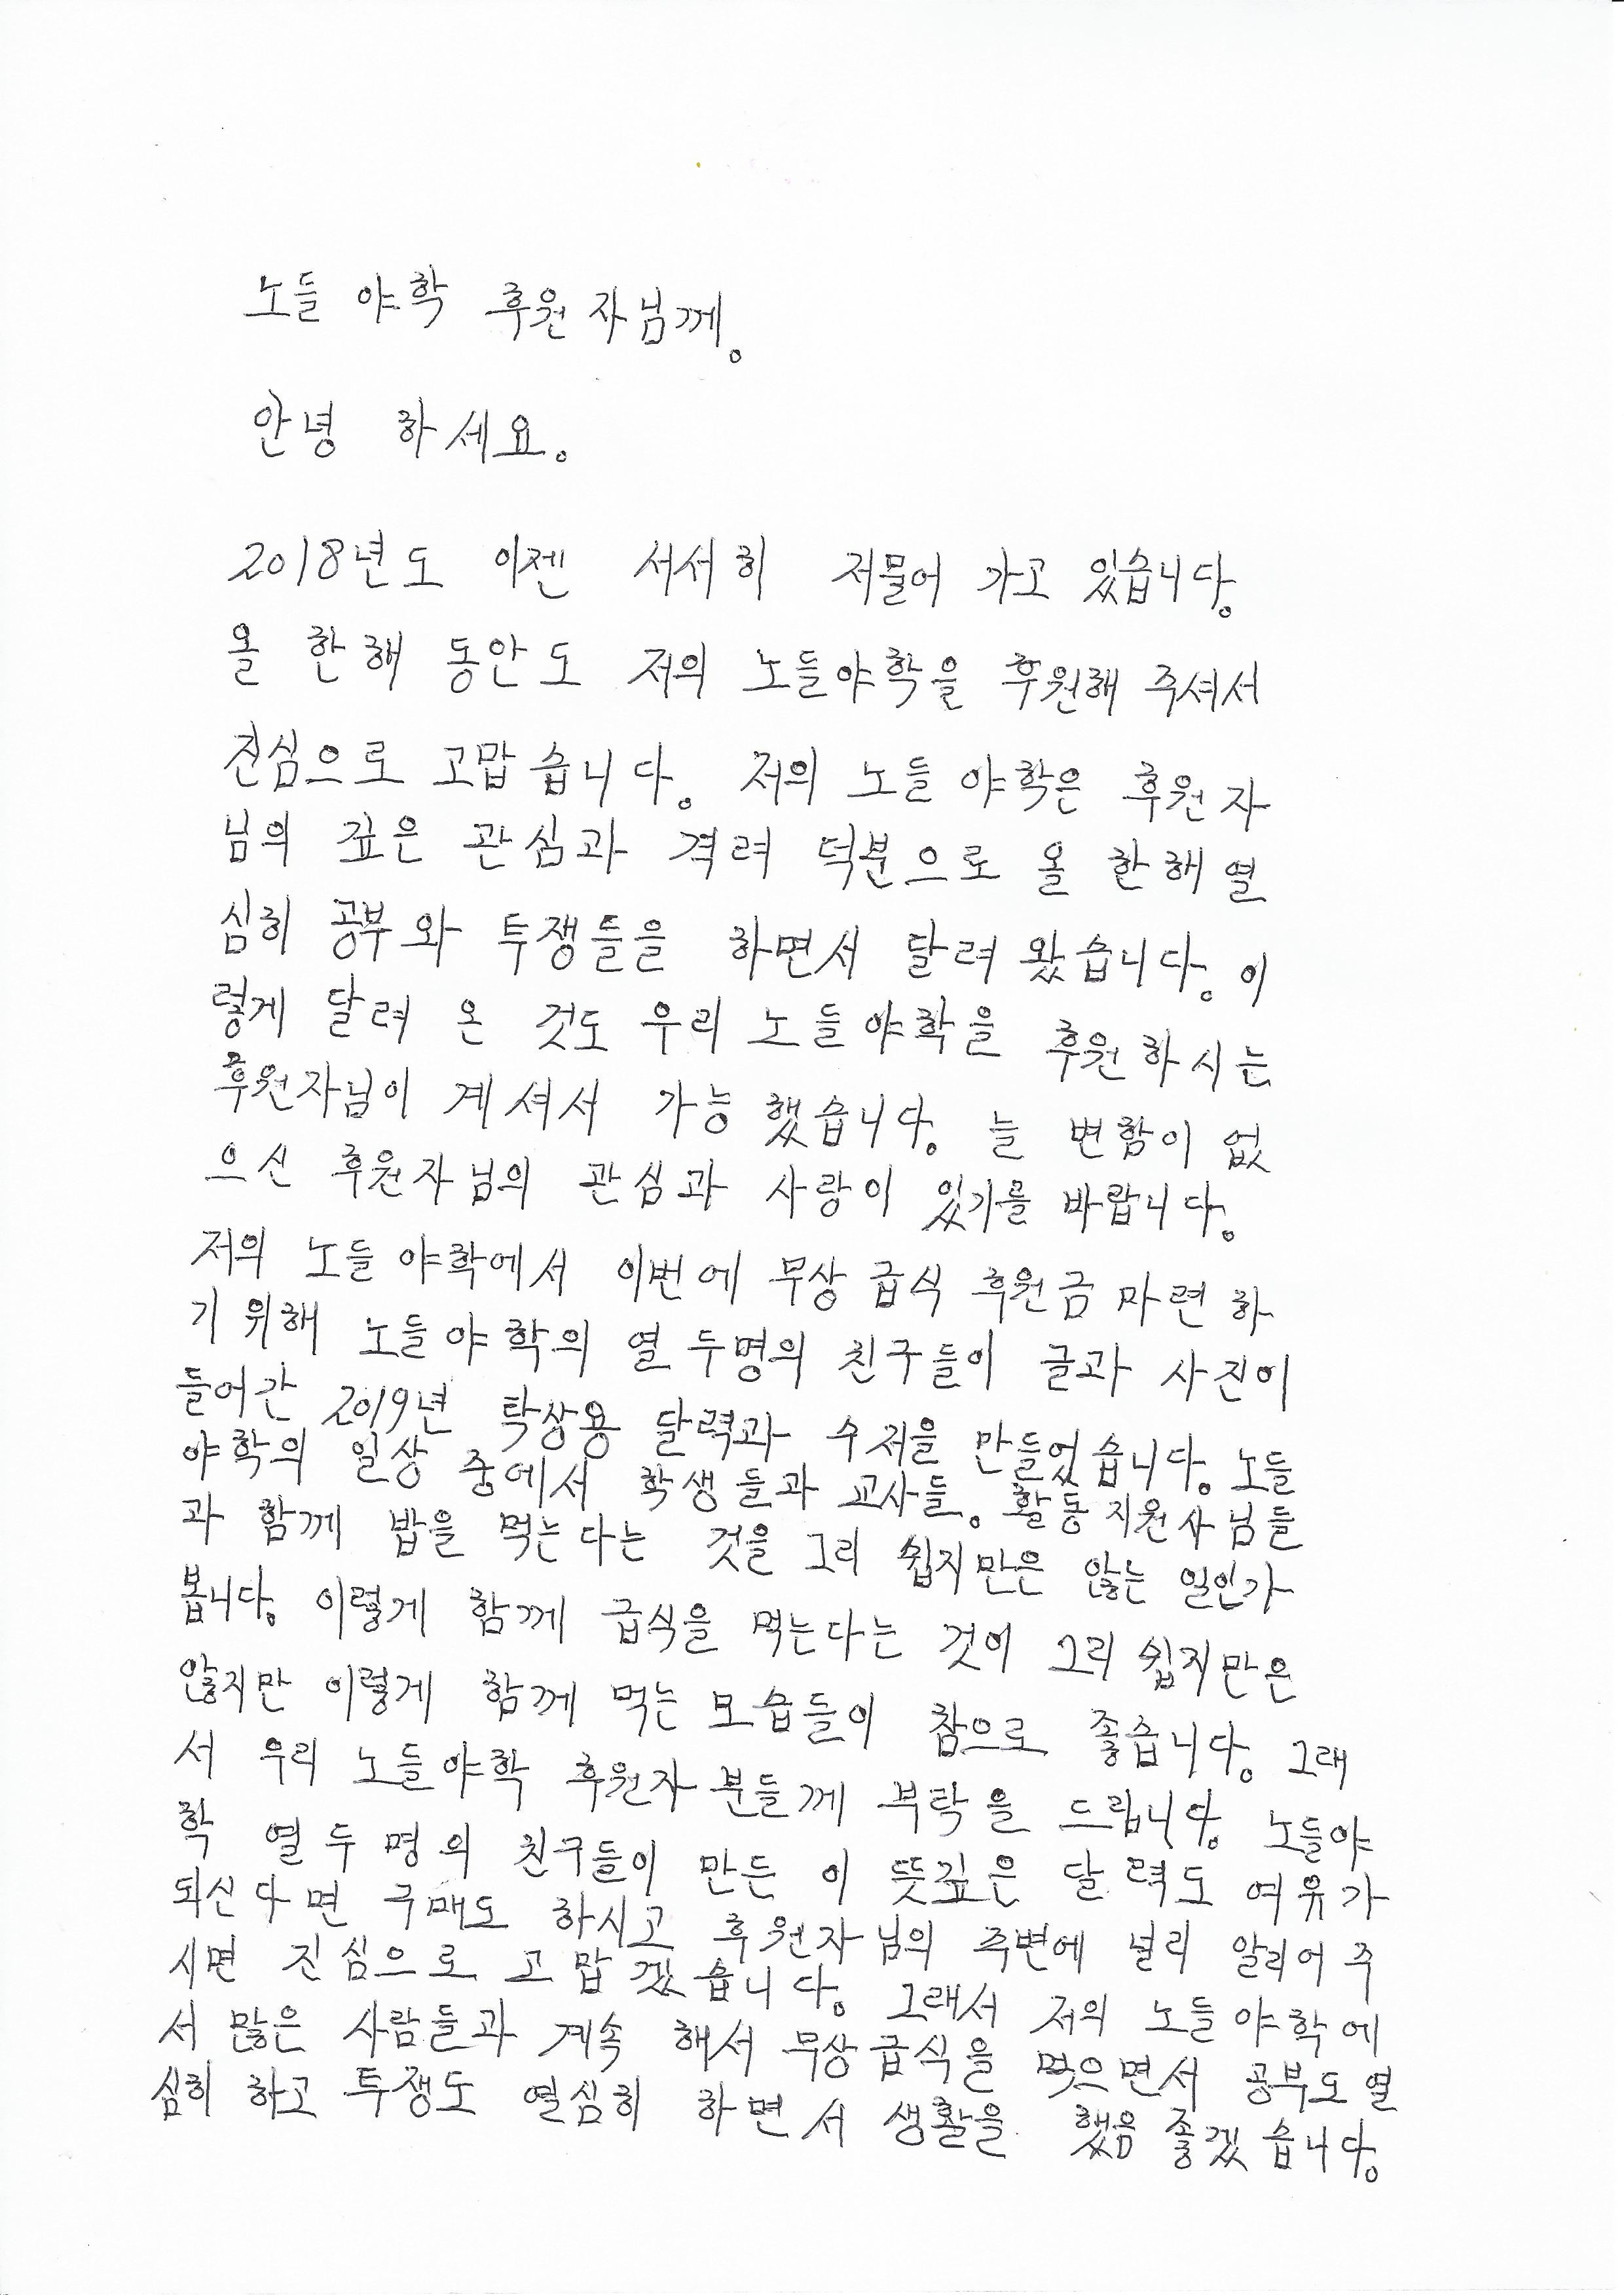 노들 야학 후원자님께.
안녕 하세요.
2018년도 이젠 서서히 저물어 가고 있습니다.
올 한해 동안도 저의 노들야학을 후원해 주셔서
진심으로 고맙습니다. 저의 노들 야학은 후원자
님의 깊은 관심과 격려 덕분으로 올 한해 열
심히 공부와 투쟁들을 하면서 달려 왔습니다. 이
렇게 달려 온 것도 우리 노들야학을 후원하시는
후원자님이 계셔서 가능했습니다. 늘 변함이 없
으신 후원자님의 관심과 사랑이 있기를 바랍니다.
저의 노들 야학에서 이번에 무상급식 후원금마련 하
기 위해 노들야학의 열두명의 친구들이 글과 사진이
들어간 2019년 탁상용 달력과 수저을 만들었습니다. 노들
야학의 일상 중에서 학생들과 교사들. 활동지원사님들
과 함께 밥을 먹는다는 것을 그리 쉽지만은 않는 일인가
봅니다. 이렇게 함께 급식을 먹는다는 것이 그리 쉽지만은
않지만 이렇게 함께 먹는 모습들이 참으로 좋습니다. 그래
서 우리 노들야학 후원자분들께 부탁을 드립니다. 노들야
학 열두명의 친구들이 만든 이 뜻깊은 달력도 여유가
되신다면 구매도 하시고 후원자님의 주변에 널리 알리어 주
시면 진심으로 고맙겠습니다. 그래서 저의 노들야학에
서 많은 사람들과 계속 해서 무상급식을 먹으면서 공부도 열
심히 하고 투쟁도 열심히 하면서 생활을 했음 좋겠습니다.